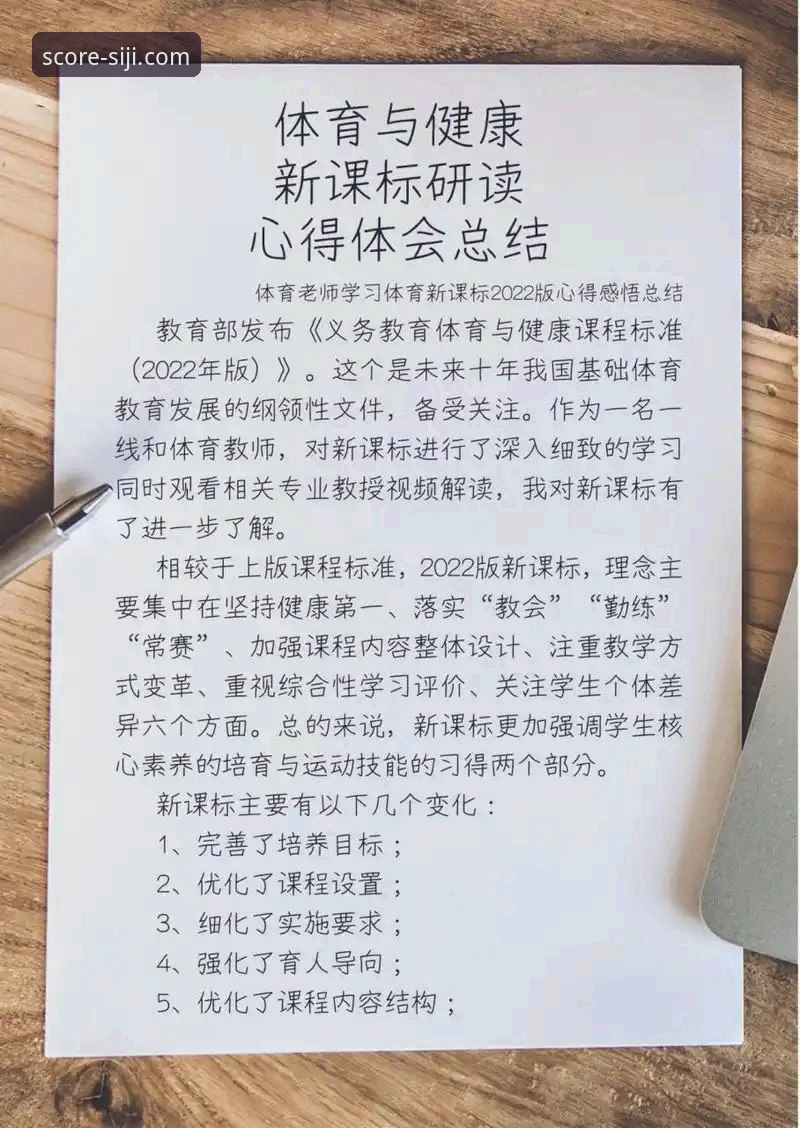 score-siji.com
体育与健康
新课标研读
心得体会总结
体育老师学习体育新课标2022版心得感悟总结
教育部发布《义务教育体育与健康课程标准
（2022年版）》。这个是未来十年我国基础体育
教育发展的纲领性文件，备受关注。作为一名一
线和体育教师，对新课标进行了深入细致的学习
同时观看相关专业教授视频解读，我对新课标有
了进一步了解。
相较于上版课程标准，2022版新课标，理念主
要集中在坚持健康第一、落实“教会”“勤练”
“常赛”、加强课程内容整体设计、注重教学方
式变革、重视综合性学习评价、关注学生个体差
异六个方面。总的来说，新课标更加强调学生核
心素养的培育与运动技能的习得两个部分。
新课标主要有以下几个变化：
1、完善了培养目标；
2、优化了课程设置；
3、细化了实施要求；
4、强化了育人导向；
5、优化了课程内容结构；